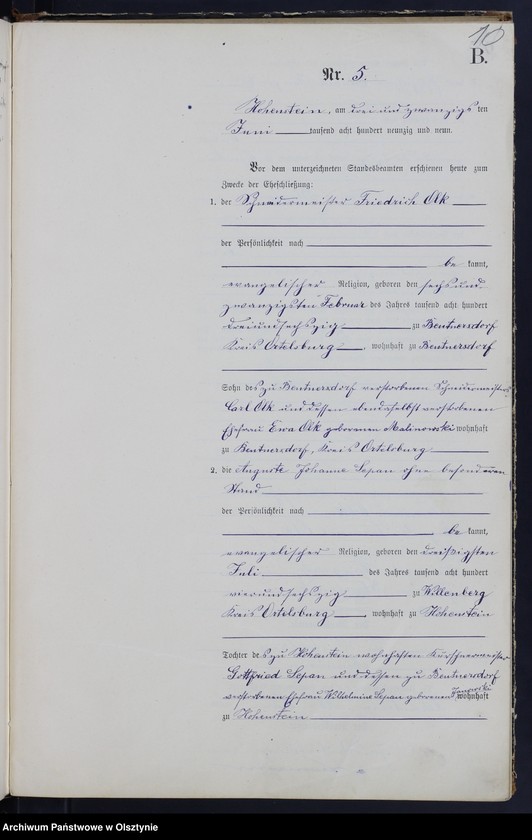 10
B.
Nr. 5.
Hohenstein, am drei und zwanzigs ten
Juni tausend acht hundert neunzig und neun.
Vor dem unterzeichneten Standesbeamten erschienen heute zum
Zwecke der Eheschließung:
1. der Schneidermeister Friedrich Olk
der Persönlichkeit nach
be kannt,
evangelischer Religion, geboren den sechs und
zwanzigsten Februar des Jahres tausend acht hundert
dreiundsechszig zu Beutnersdorf
Kreis Ortelsburg, wohnhaft zu Beutnersdorf
Sohn des zu Beutnersdorf verstorbenen Schneidermeisters
Carl Olk und dessen ebendaselbst verstorbenen
Ehefrau Ewa Olk geborenen Malinowski wohnhaft
zu Beutnersdorf, Kreis Ortelsburg
2. die Auguste Johanne Sepan ohne besonderen
Stand
der Persönlichkeit nach
be kannt,
evangelischer Religion, geboren den dreißigsten
Juli des Jahres tausend acht hundert
vierundsechszig zu Willenberg
Kreis Ortelsburg, wohnhaft zu Hohenstein
Tochter des zu Hohenstein wohnhaften Kürschnermeister
Gottfried Sepan und dessen zu Beutnersdorf
verstorbenen Ehefrau Wilhelmine Sepan geborenen wohnhaft
zu Hohenstein
Archiwum Państwowe w Olsztynie